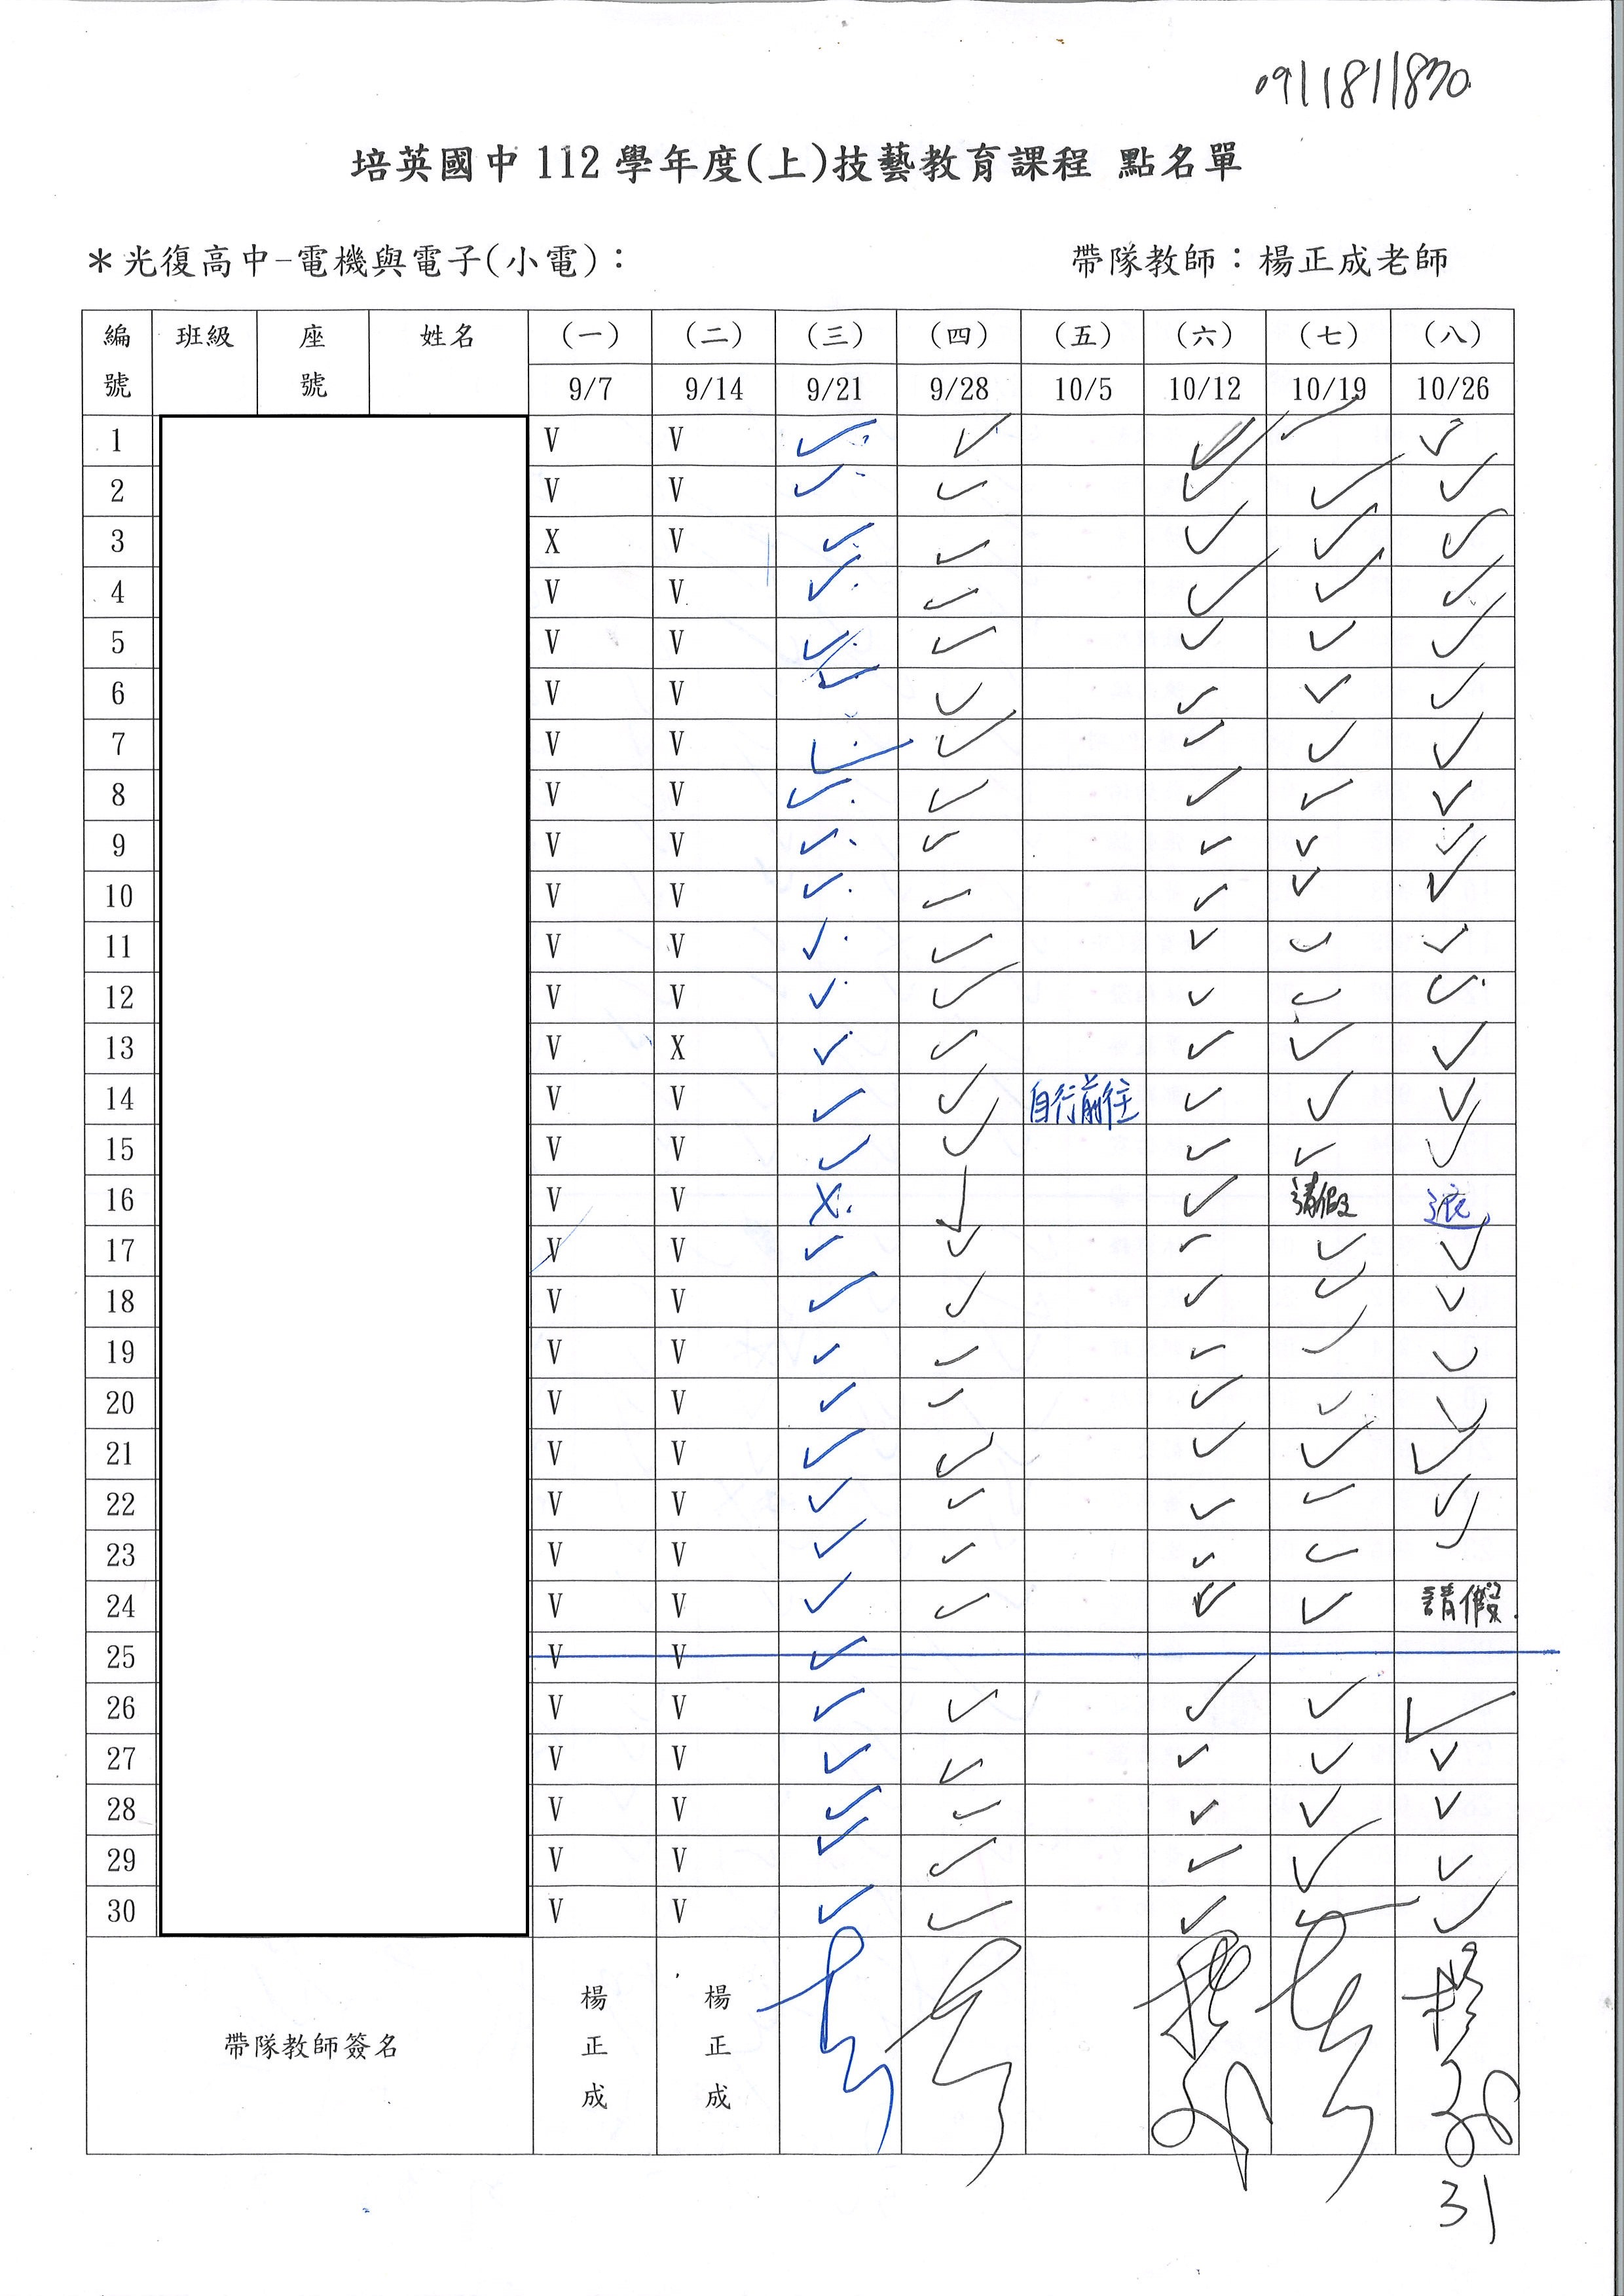 0911811870
培英國中112學年度(上)技藝教育課程 點名單
＊光復高中-電機與電子(小電)： 帶隊教師：楊正成老師
編號 班級 座號 姓名 (一) (二) (三) (四) (五) (六) (七) (八)
9/7 9/14 9/21 9/28 10/5 10/12 10/19 10/26
1 V V ✓ ✓ ✓ ✓ ✓
2 V V ✓ ✓ ✓ ✓ ✓
3 X V ✓ ✓ ✓ ✓ ✓
4 V V ✓ ✓ ✓ ✓ ✓
5 V V ✓ ✓ ✓ ✓ ✓
6 V V ✓ ✓ ✓ ✓ ✓
7 V V ✓ ✓ ✓ ✓ ✓
8 V V ✓ ✓ ✓ ✓ ✓
9 V V ✓ ✓ ✓ ✓ ✓
10 V V ✓ ✓ ✓ ✓ ✓
11 V V ✓ ✓ ✓ ✓ ✓
12 V V ✓ ✓ ✓ ✓ ✓
13 V X ✓ ✓ ✓ ✓ ✓
14 V V ✓ ✓ 自行前往 ✓ ✓ ✓
15 V V ✓ ✓ ✓ ✓ ✓
16 V V X ✓ ✓ 請假 退
17 V V ✓ ✓ ✓ ✓ ✓
18 V V ✓ ✓ ✓ ✓ ✓
19 V V ✓ ✓ ✓ ✓ ✓
20 V V ✓ ✓ ✓ ✓ ✓
21 V V ✓ ✓ ✓ ✓ ✓
22 V V ✓ ✓ ✓ ✓ ✓
23 V V ✓ ✓ ✓ ✓ ✓
24 V V ✓ ✓ ✓ ✓ 請假
25 V V ✓
26 V V ✓ ✓ ✓ ✓ ✓
27 V V ✓ ✓ ✓ ✓ ✓
28 V V ✓ ✓ ✓ ✓ ✓
29 V V ✓ ✓ ✓ ✓ ✓
30 V V ✓ ✓ ✓ ✓ ✓
帶隊教師簽名 楊正成 楊正成
31